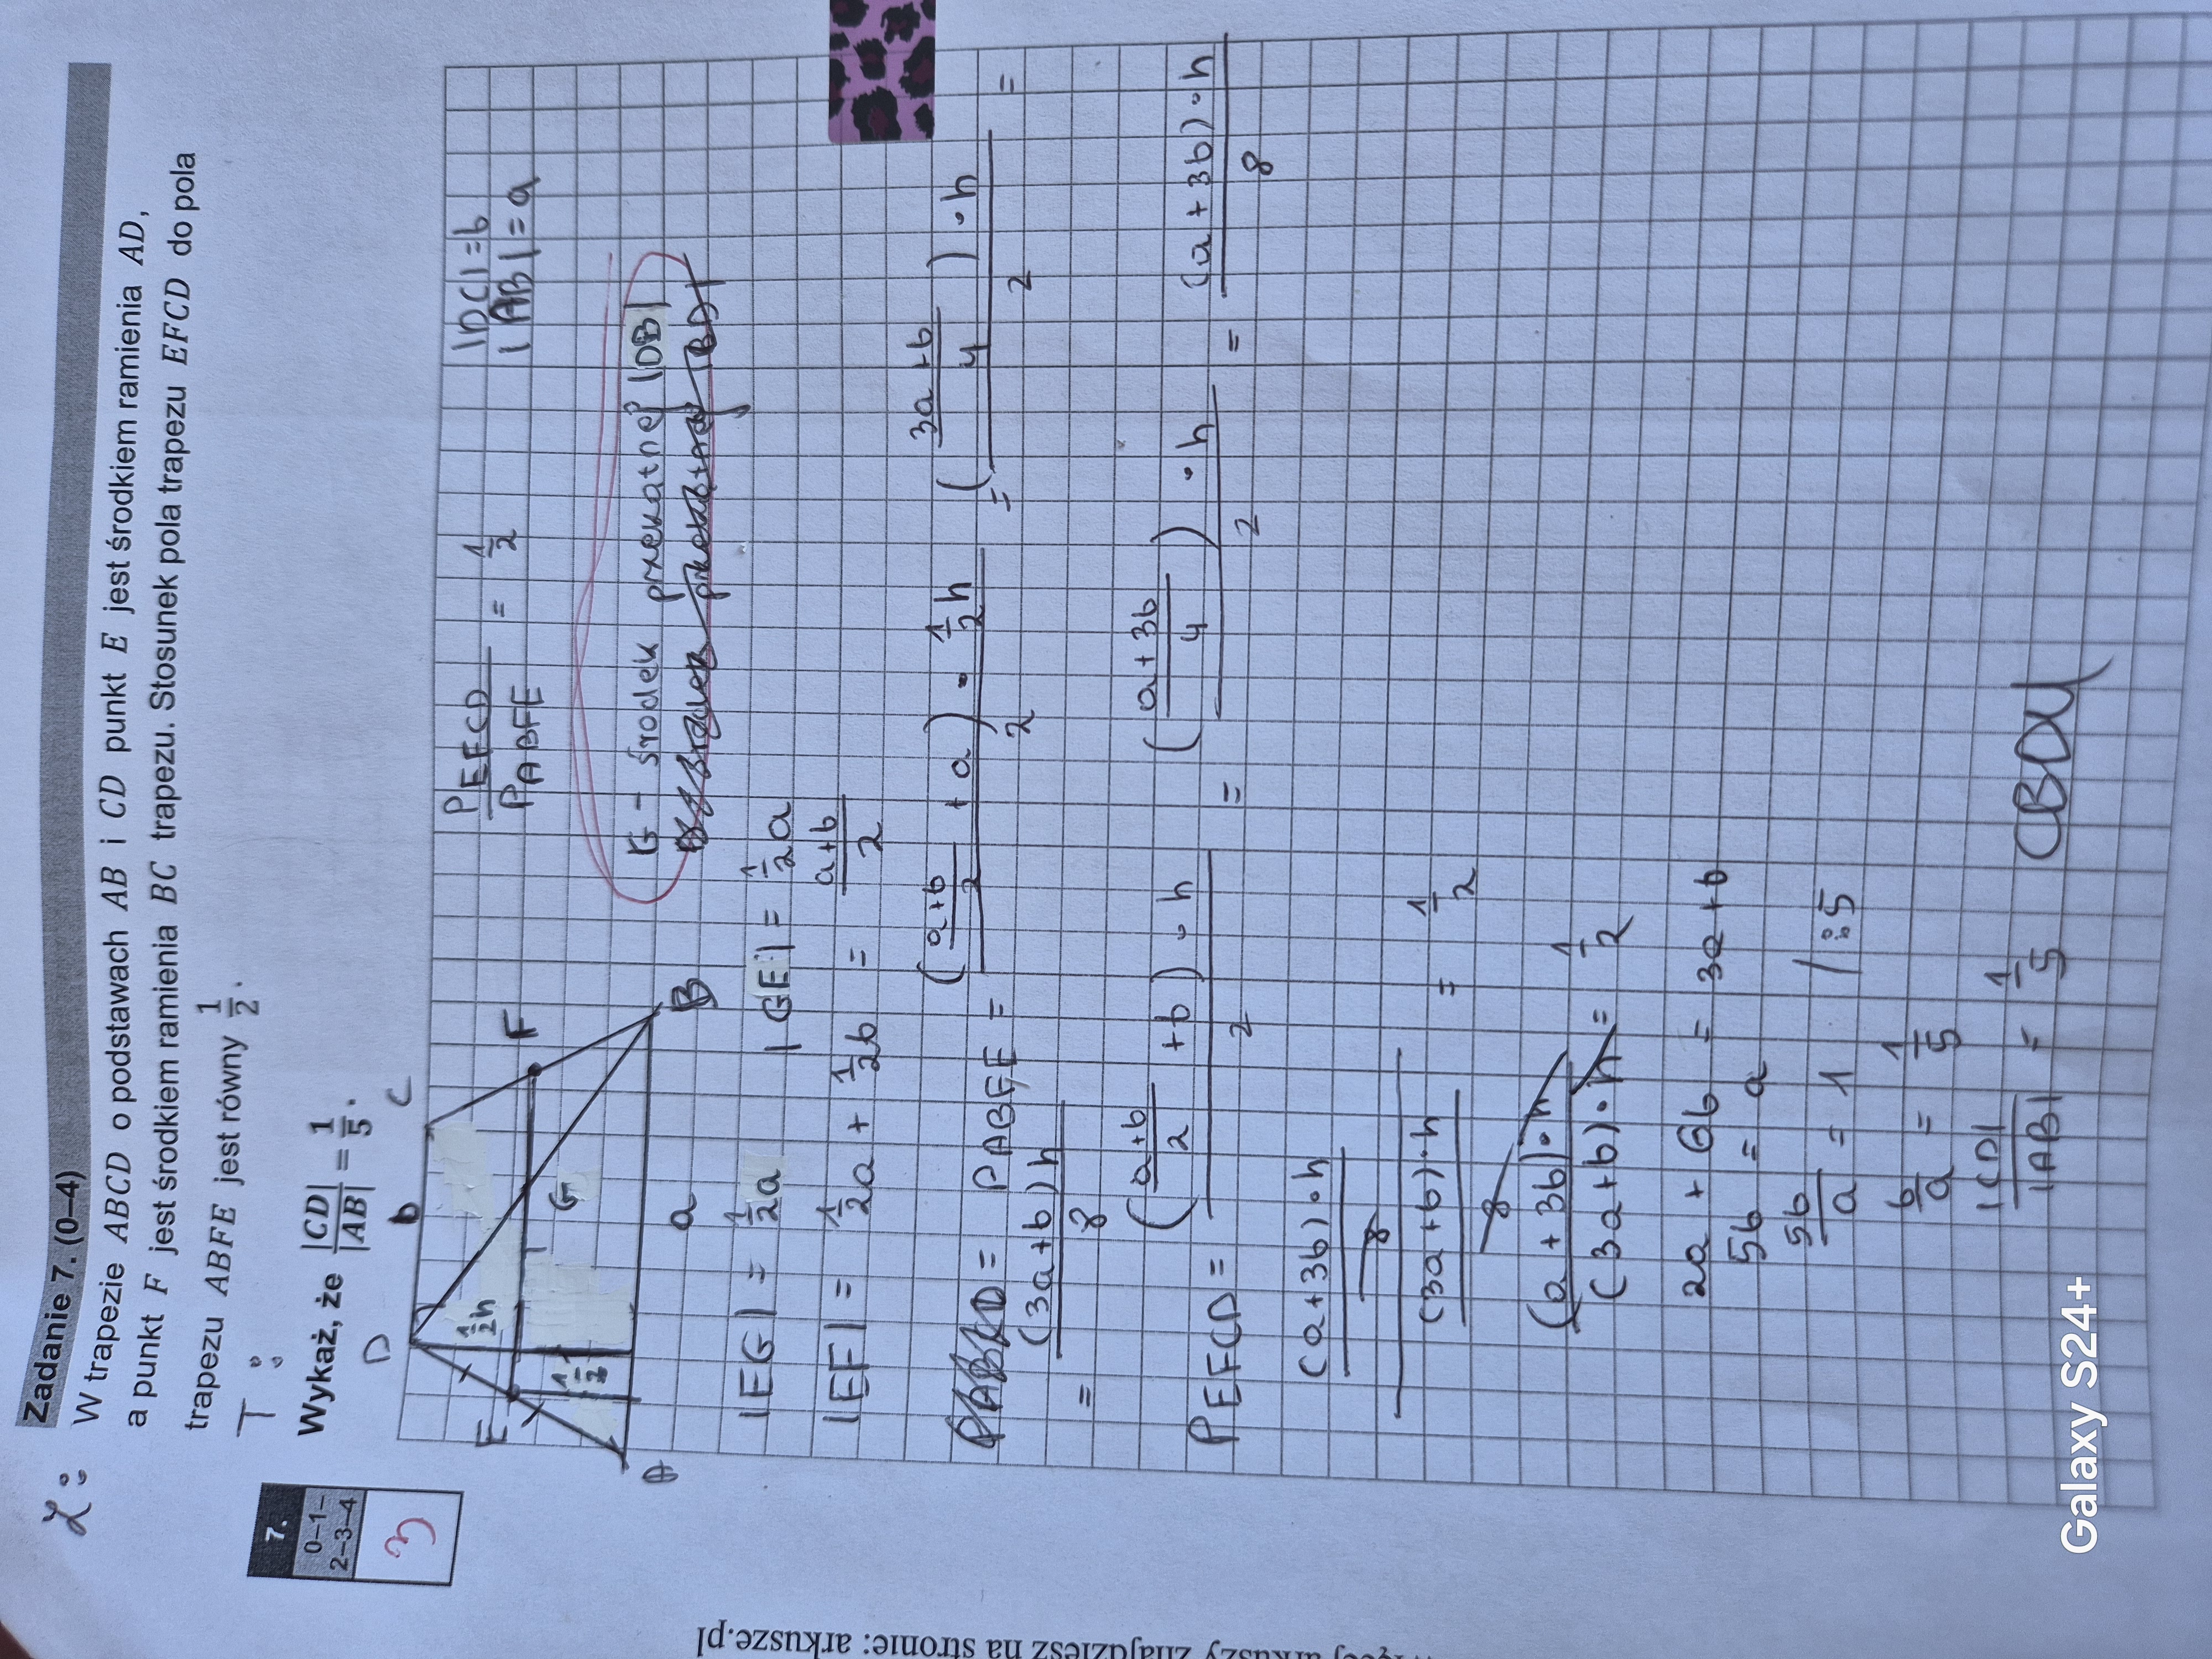 Zadanie 7. (0–4)
Z:
W trapezie ABCD o podstawach AB i CD punkt E jest środkiem ramienia AD,
a punkt F jest środkiem ramienia BC trapezu. Stosunek pola trapezu EFCD do pola
trapezu ABFE jest równy 1/2.
T:
Wykaż, że |CD|/|AB| = 1/5.
7.
0–1–
2–3–4
3
D b C
E F
G
A a B
1/2h
1/2
P EFCD / P ABFE = 1/2
|DC| = b
|AB| = a
G – środek przekątnej |DB|
|EG| = 1/2a |GF| = 1/2a
|EF| = 1/2a + 1/2b = (a+b)/2
P ABFE = ((a+b)/2 + a) · 1/2h / 2 = ((3a+b)/4) · h / 2 =
= (3a+b)h / 8
P EFCD = ((a+b)/2 + b) · h / 2 = ((a+3b)/4) · h / 2 = (a+3b) · h / 8
(a+3b) · h / 8 / (3a+b) · h / 8 = 1/2
(a+3b) · h / (3a+b) · h = 1/2
2a + 6b = 3a + b
5b = a
5b/a = 1 /:5
b/a = 1/5
|CD|/|AB| = 1/5 CBDU
Galaxy S24+
arkuszy znajdziesz na stronie: arkusze.pl